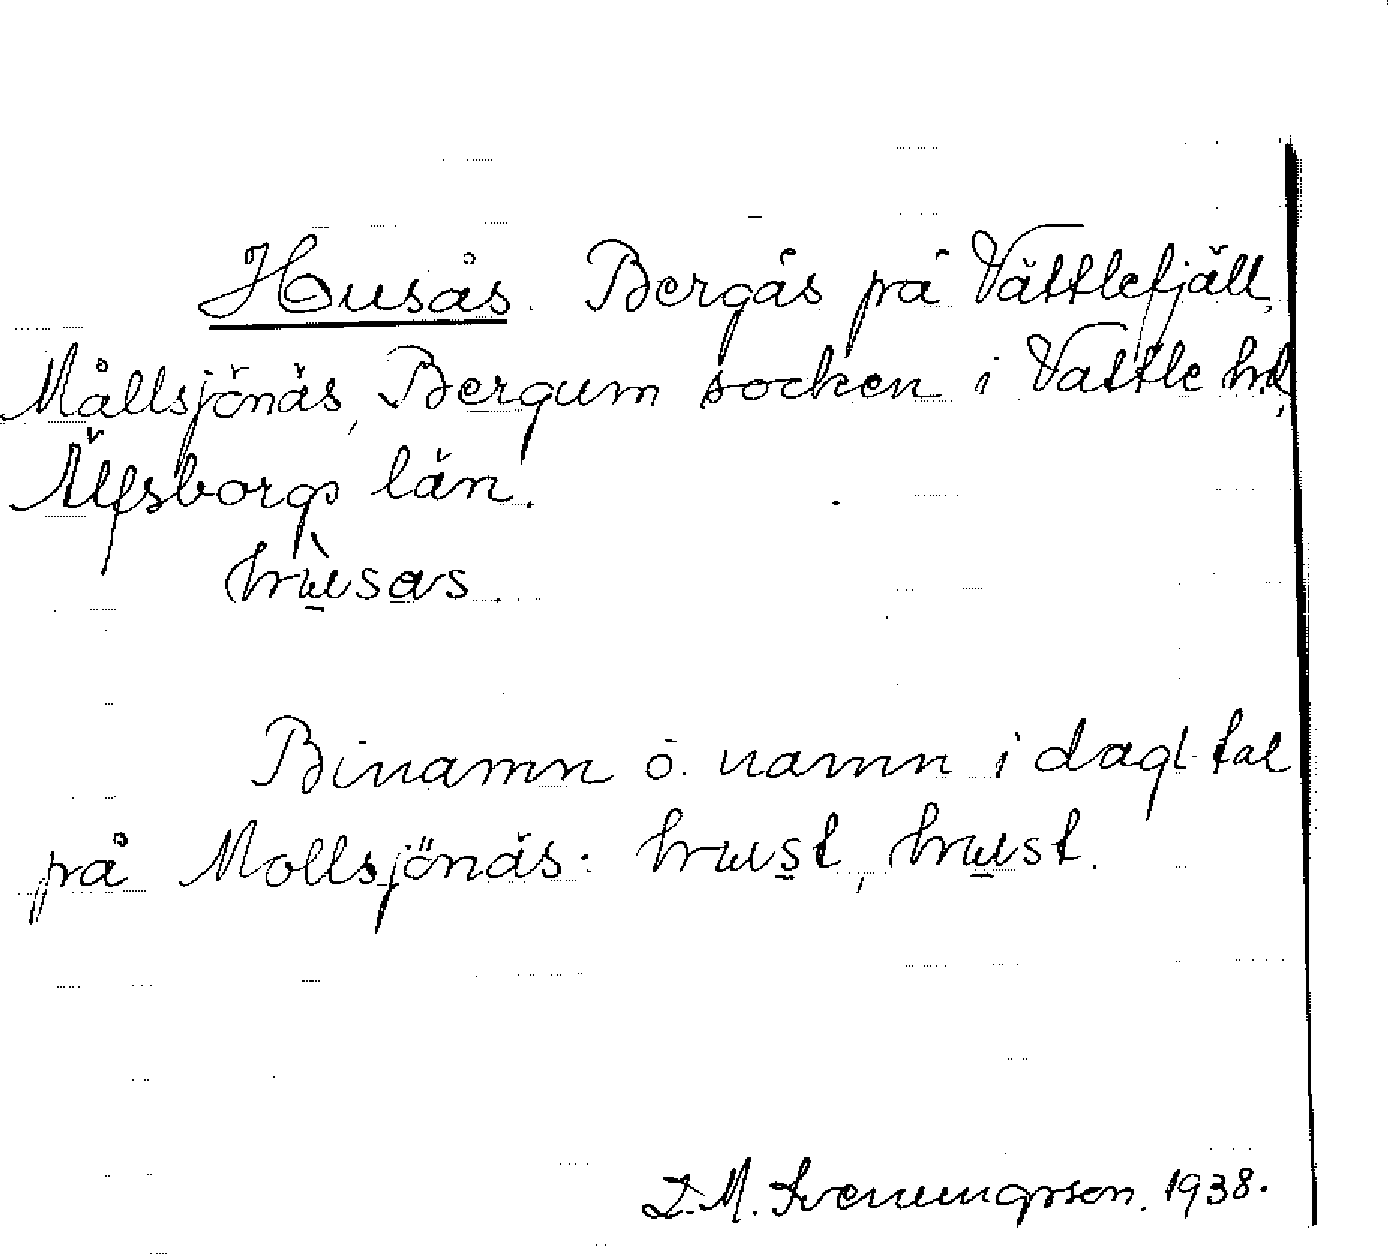 Husås. Bergås på Vättlefjäll,
Mållsjönäs, Bergum socken i Vättle hd,
Älfsborgs län.
hùsas.
Binamn o. namn i dagl. tal
på Mollsjönäs: hust, hust.
L. M. Svenungsson. 1938.